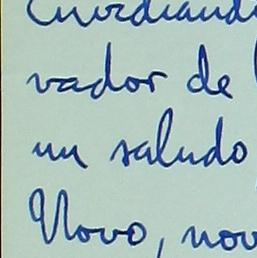 vador de
un saludo
Novo, nov